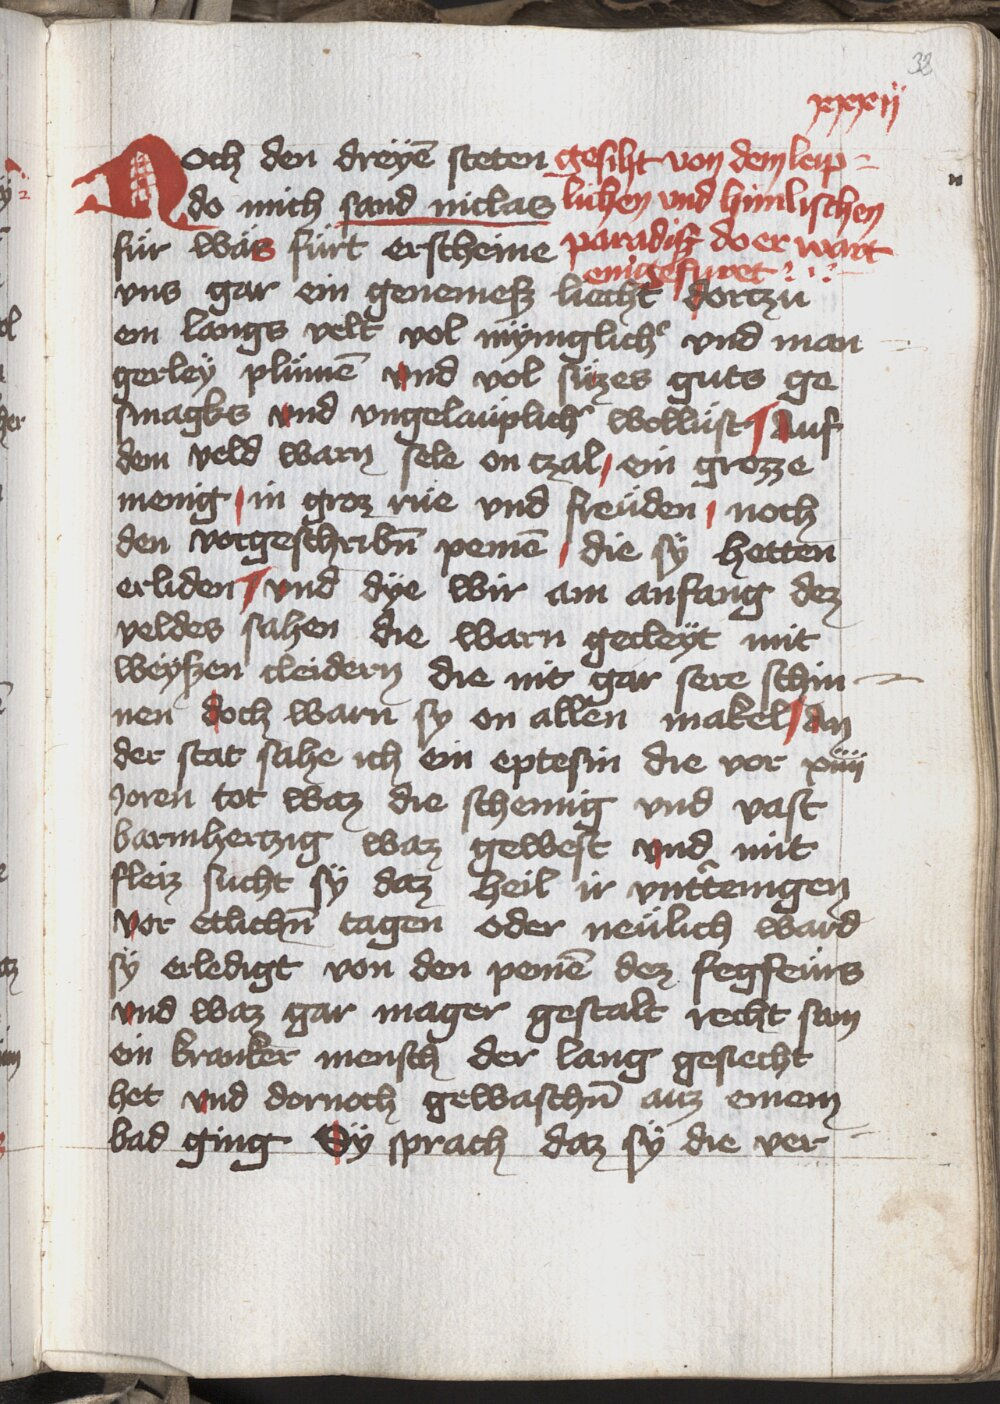 38
xxxxij
Noch den dreyē steten
gesiht von dem leip-
do mich sand niclas
lichen vnd himlischen
für wäs fürt erscheine
paradisz do er wart
eingefuret
vns gar ein genemesz liecht dortzu
ein langs velt vol myniglich' vnd man
gerley plümē vnd vol süzes guts ge
smagks vnd vngelaüplich' wollüst auf
dem veld warn sele on tzal / ein grozze
menig / in groz rüe vnd freüden / noch
den vorgeschribn̄ penē / die sy hetten
erliden / vnd dÿe wir am anfang dez
veldes sahen die warn gecleÿt mit
weÿszen cleidern die nit gar sere schin-
nen doch warn sy on allen makel / an
der stat sahe ich ein eptesin die vor xiiij
Joren tot waz die schemig vnd vast
barmhertzig waz gewest vnd mit
fleiz sucht sÿ daz heil ir vnttenigen
vor etlichn̄ tagen oder neülich ward
sÿ erledigt von den penē dez fegfeürs
vnd waz gar mager gestalt recht sam
ein kranker mensch der lang gesiecht
het vnd dornoch gewaschn̄ auz einem
bad ging Sÿ sprach daz sÿ die ver-